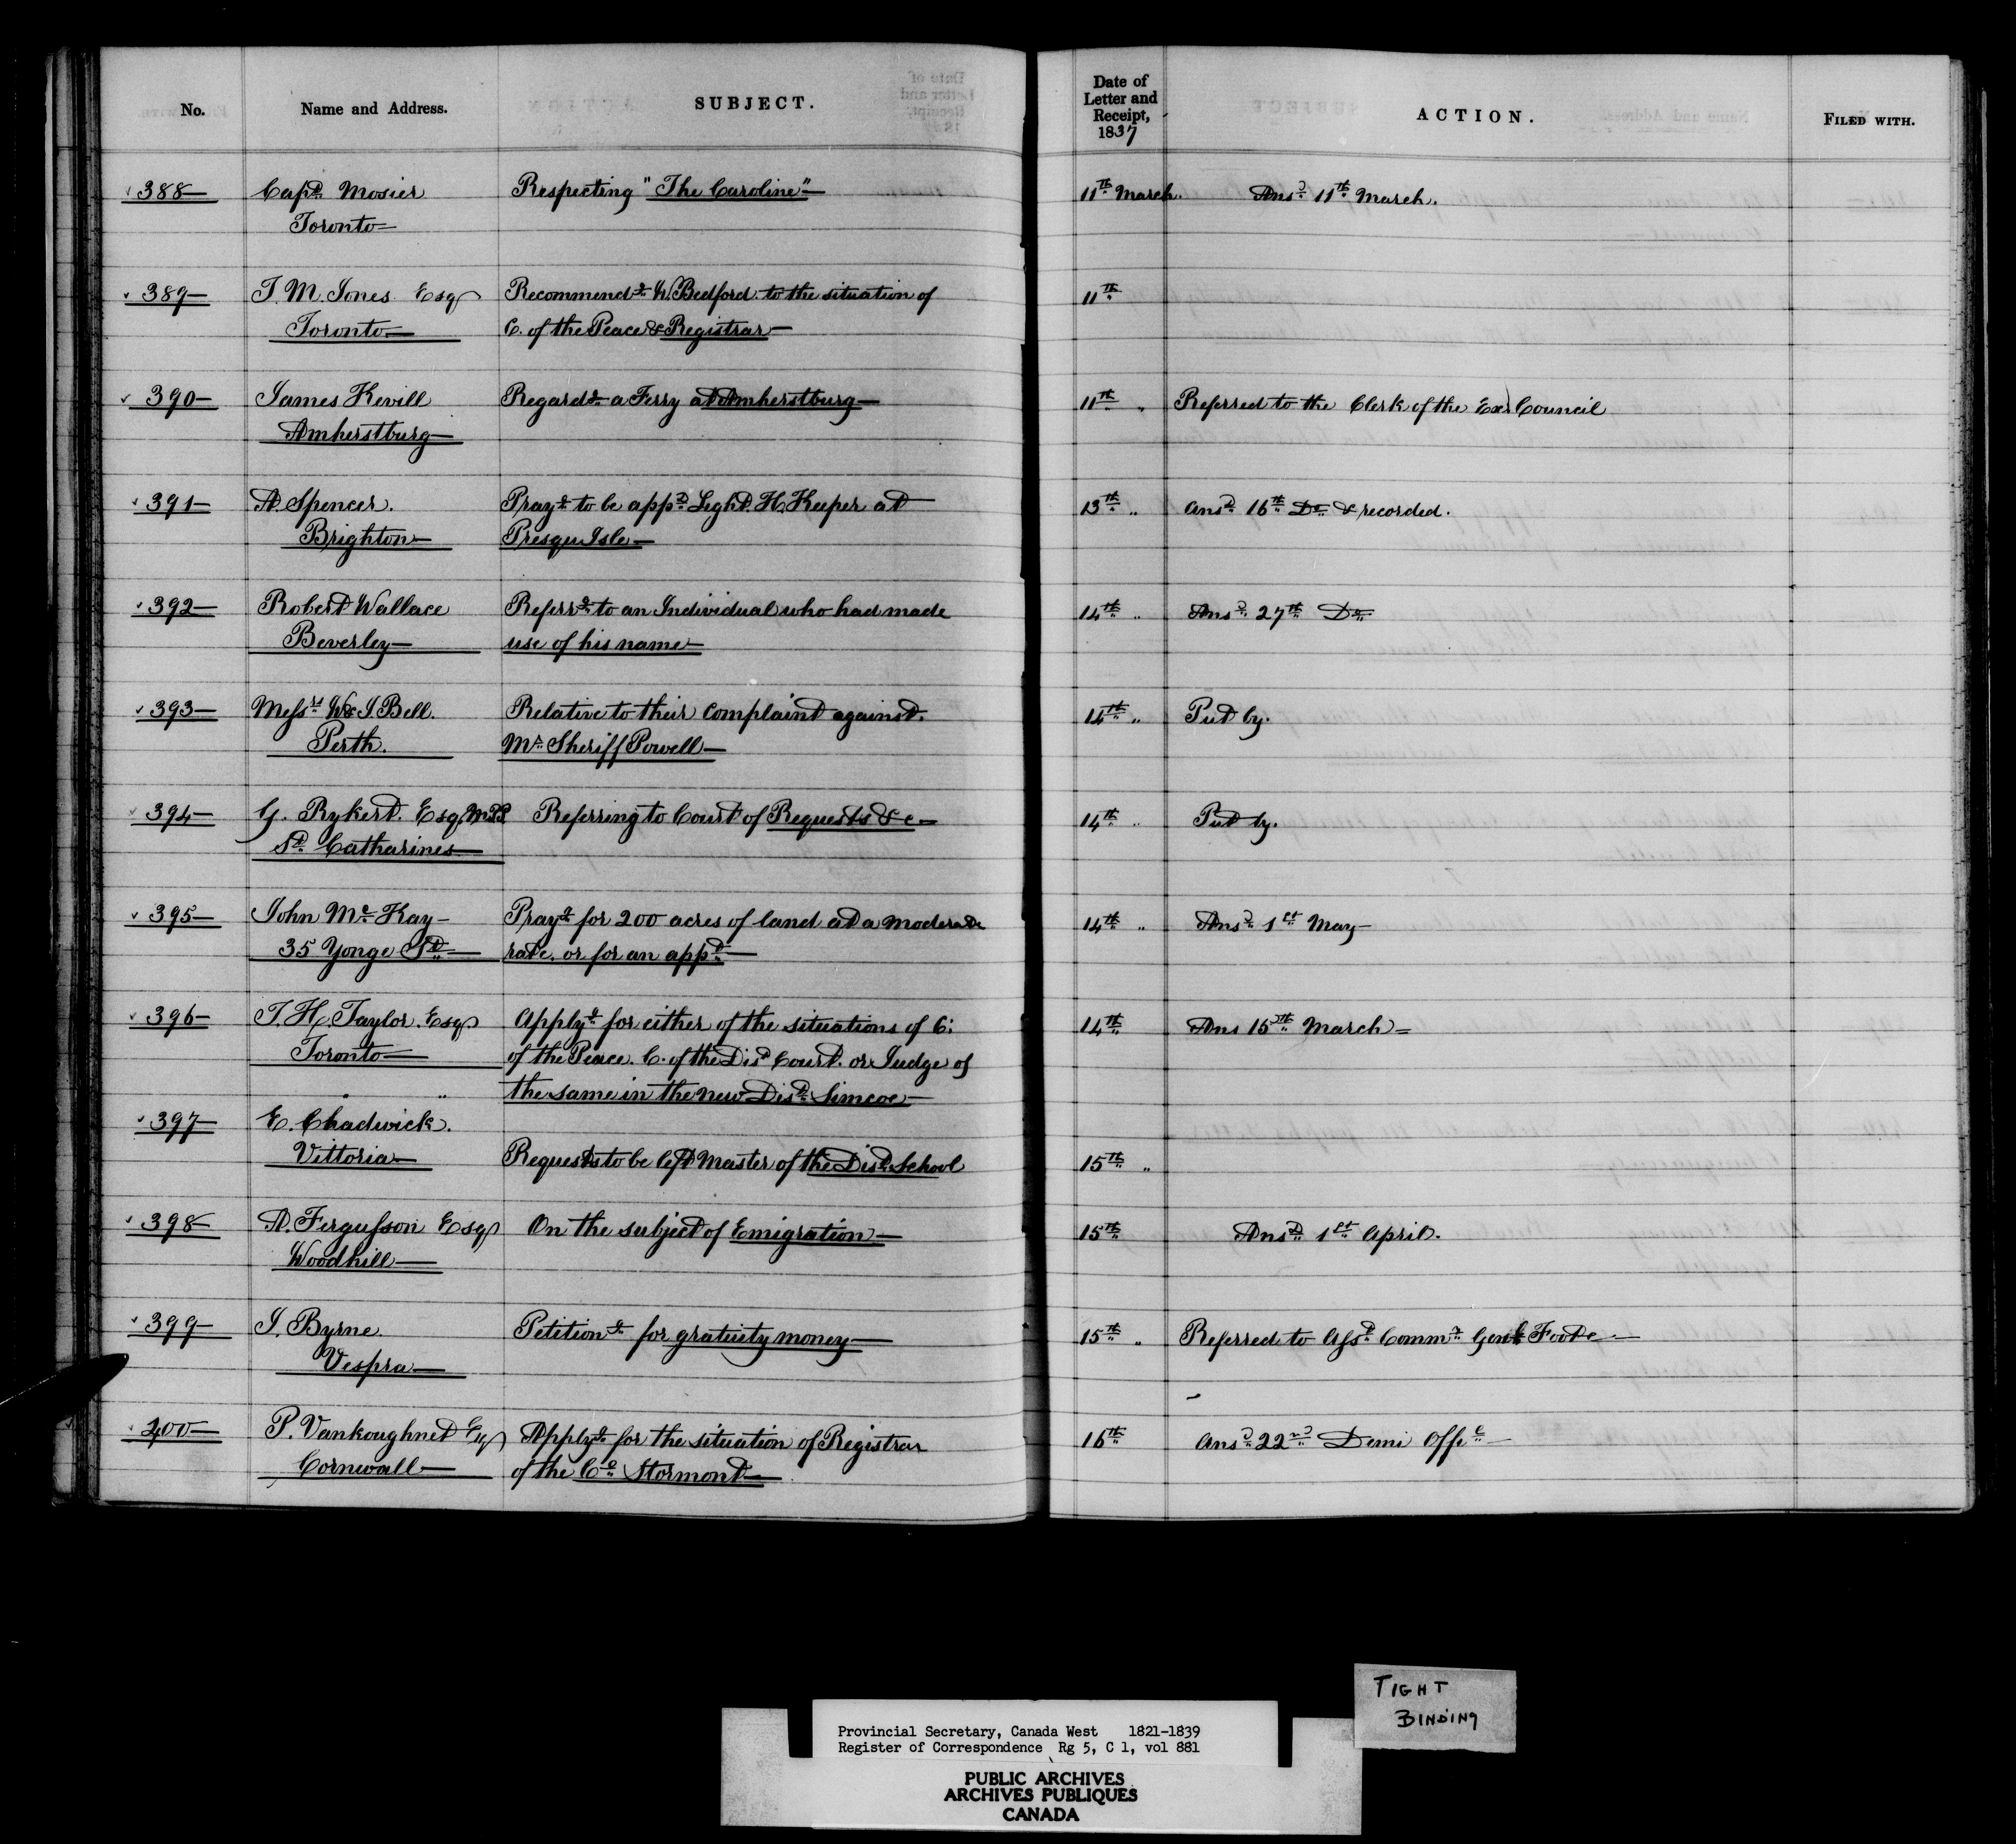 No. Name and Address. SUBJECT. Date of Letter and Receipt, 1837 ACTION. FILED WITH.
388 Capt. Mosier Respecting "The Caroline" 11th March. Ansd 11th March.
Toronto
389 J. M. Jones Esqr Recommendg W. Bedford to the situation of 11th
Toronto C. of the Peace & Registrar
390 James Kevill Regardg a Ferry at Amherstburg 11th " Referred to the Clerk of the Exe Council
Amherstburg
391 A. Spencer. Prayg to be appd Light H. Keeper at 13th " Ansd 16th Do & recorded.
Brighton Presqu Isle
392 Robert Wallace Referrg to an Individual who had made 14th " Ansd 27th Do
Beverley use of his name
393 Messrs W & J. Bell. Relative to their complaint against 14th " Put by.
Perth. Mr Sheriff Powell
394 G. Rykert. Esqr M.P.P. Referring to Court of Requests &c 14th " Put by.
St. Catharines
395 John McKay Prayg for 200 acres of land at a moderate 14th " Ansd 1st May
35 Yonge St. rate. or for an appt
396 J. H. Taylor. Esqr Applyg for either of the situations of C: 14th Ans 15th March
Toronto of the Peace. C. of the Dist Court. or Judge of
" " the same in the new Dist Simcoe
397 E. Chadwick.
Vittoria Requests to be left Master of the Dist. School 15th "
398 A. Fergusson Esqr On the subject of Emigration 15th Ansd 1st April.
Woodhill
399 J. Byrne. Petitiong for gratuity money 15th " Referred to Asst Commy Genl Foote
Vespra
400 P. Vankoughnet Esqr Applyg for the situation of Registrar 16th Ansd 22nd Demi Offl
Cornwall of the Co Stormont
TIGHT
BINDING
Provincial Secretary, Canada West 1821-1839
Register of Correspondence Rg 5, C 1, vol 881
PUBLIC ARCHIVES
ARCHIVES PUBLIQUES
CANADA